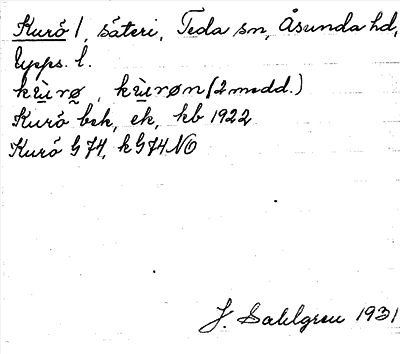 Kurö 1, säteri, Teda sn, Åsunda hd,
Upps. l.
kùrø, kùrøn (2 medd.)
Kurö bek, ek, kb 1922
Kurö G 74, kG74NO
J. Sahlgren 1931